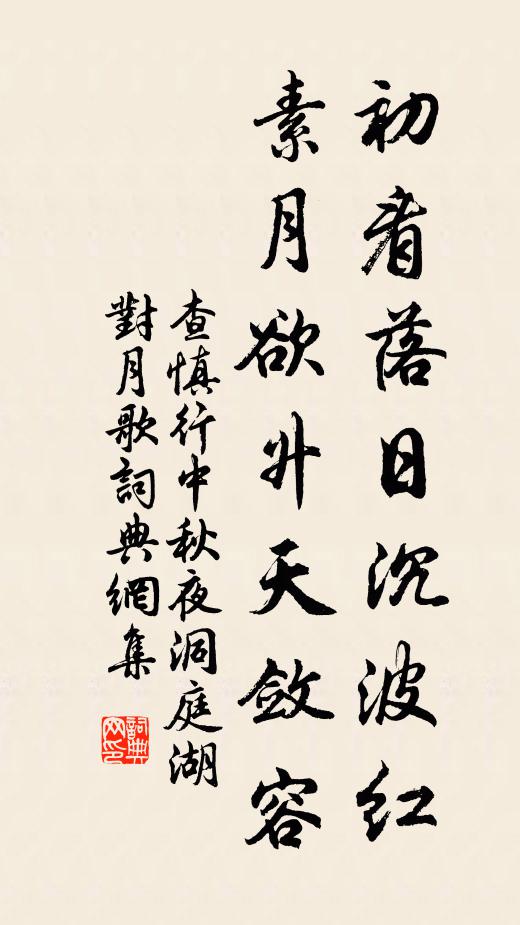 初看落日沉波红
素月欲升天敛容
查慎行中秋夜洞庭湖
對月歌詞典網集
詞典網印